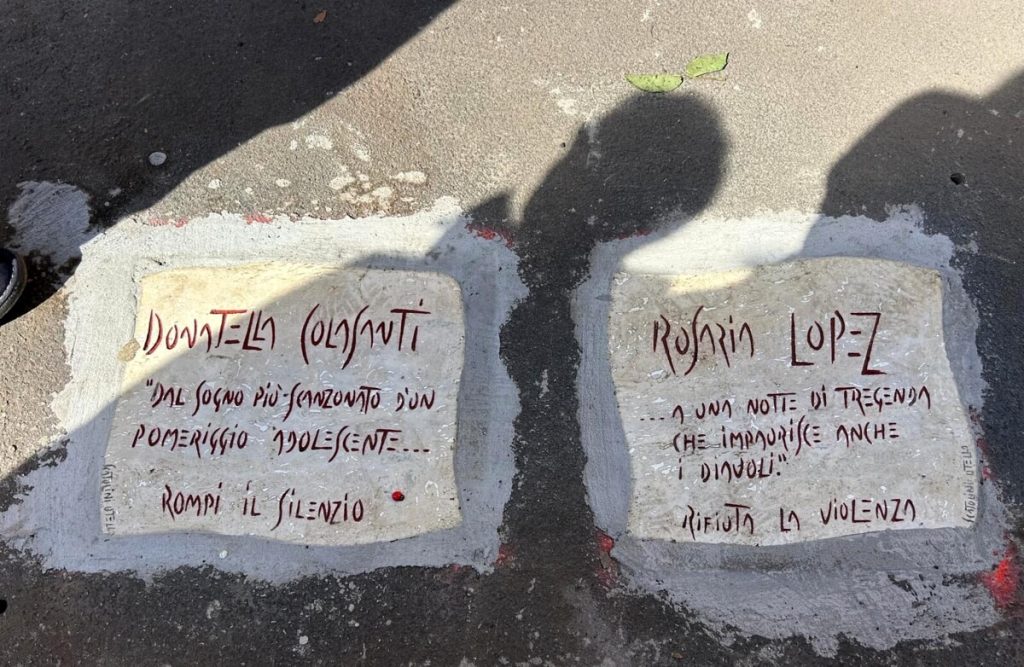 DONATELLA COLASANTI
"DAL SOGNO PIÙ SCANZONATO D'UN
POMERIGGIO ADOLESCENTE...
ROMPI IL SILENZIO
ROSARIA LOPEZ
...A UNA NOTTE DI TREGENDA
CHE IMPAURISCE ANCHE
I DIAVOLI."
RIFIUTA LA VIOLENZA
OTELLO